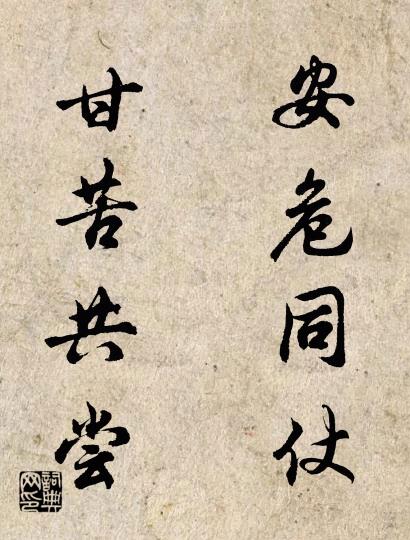 安危同仗
甘苦共尝
詞典网印